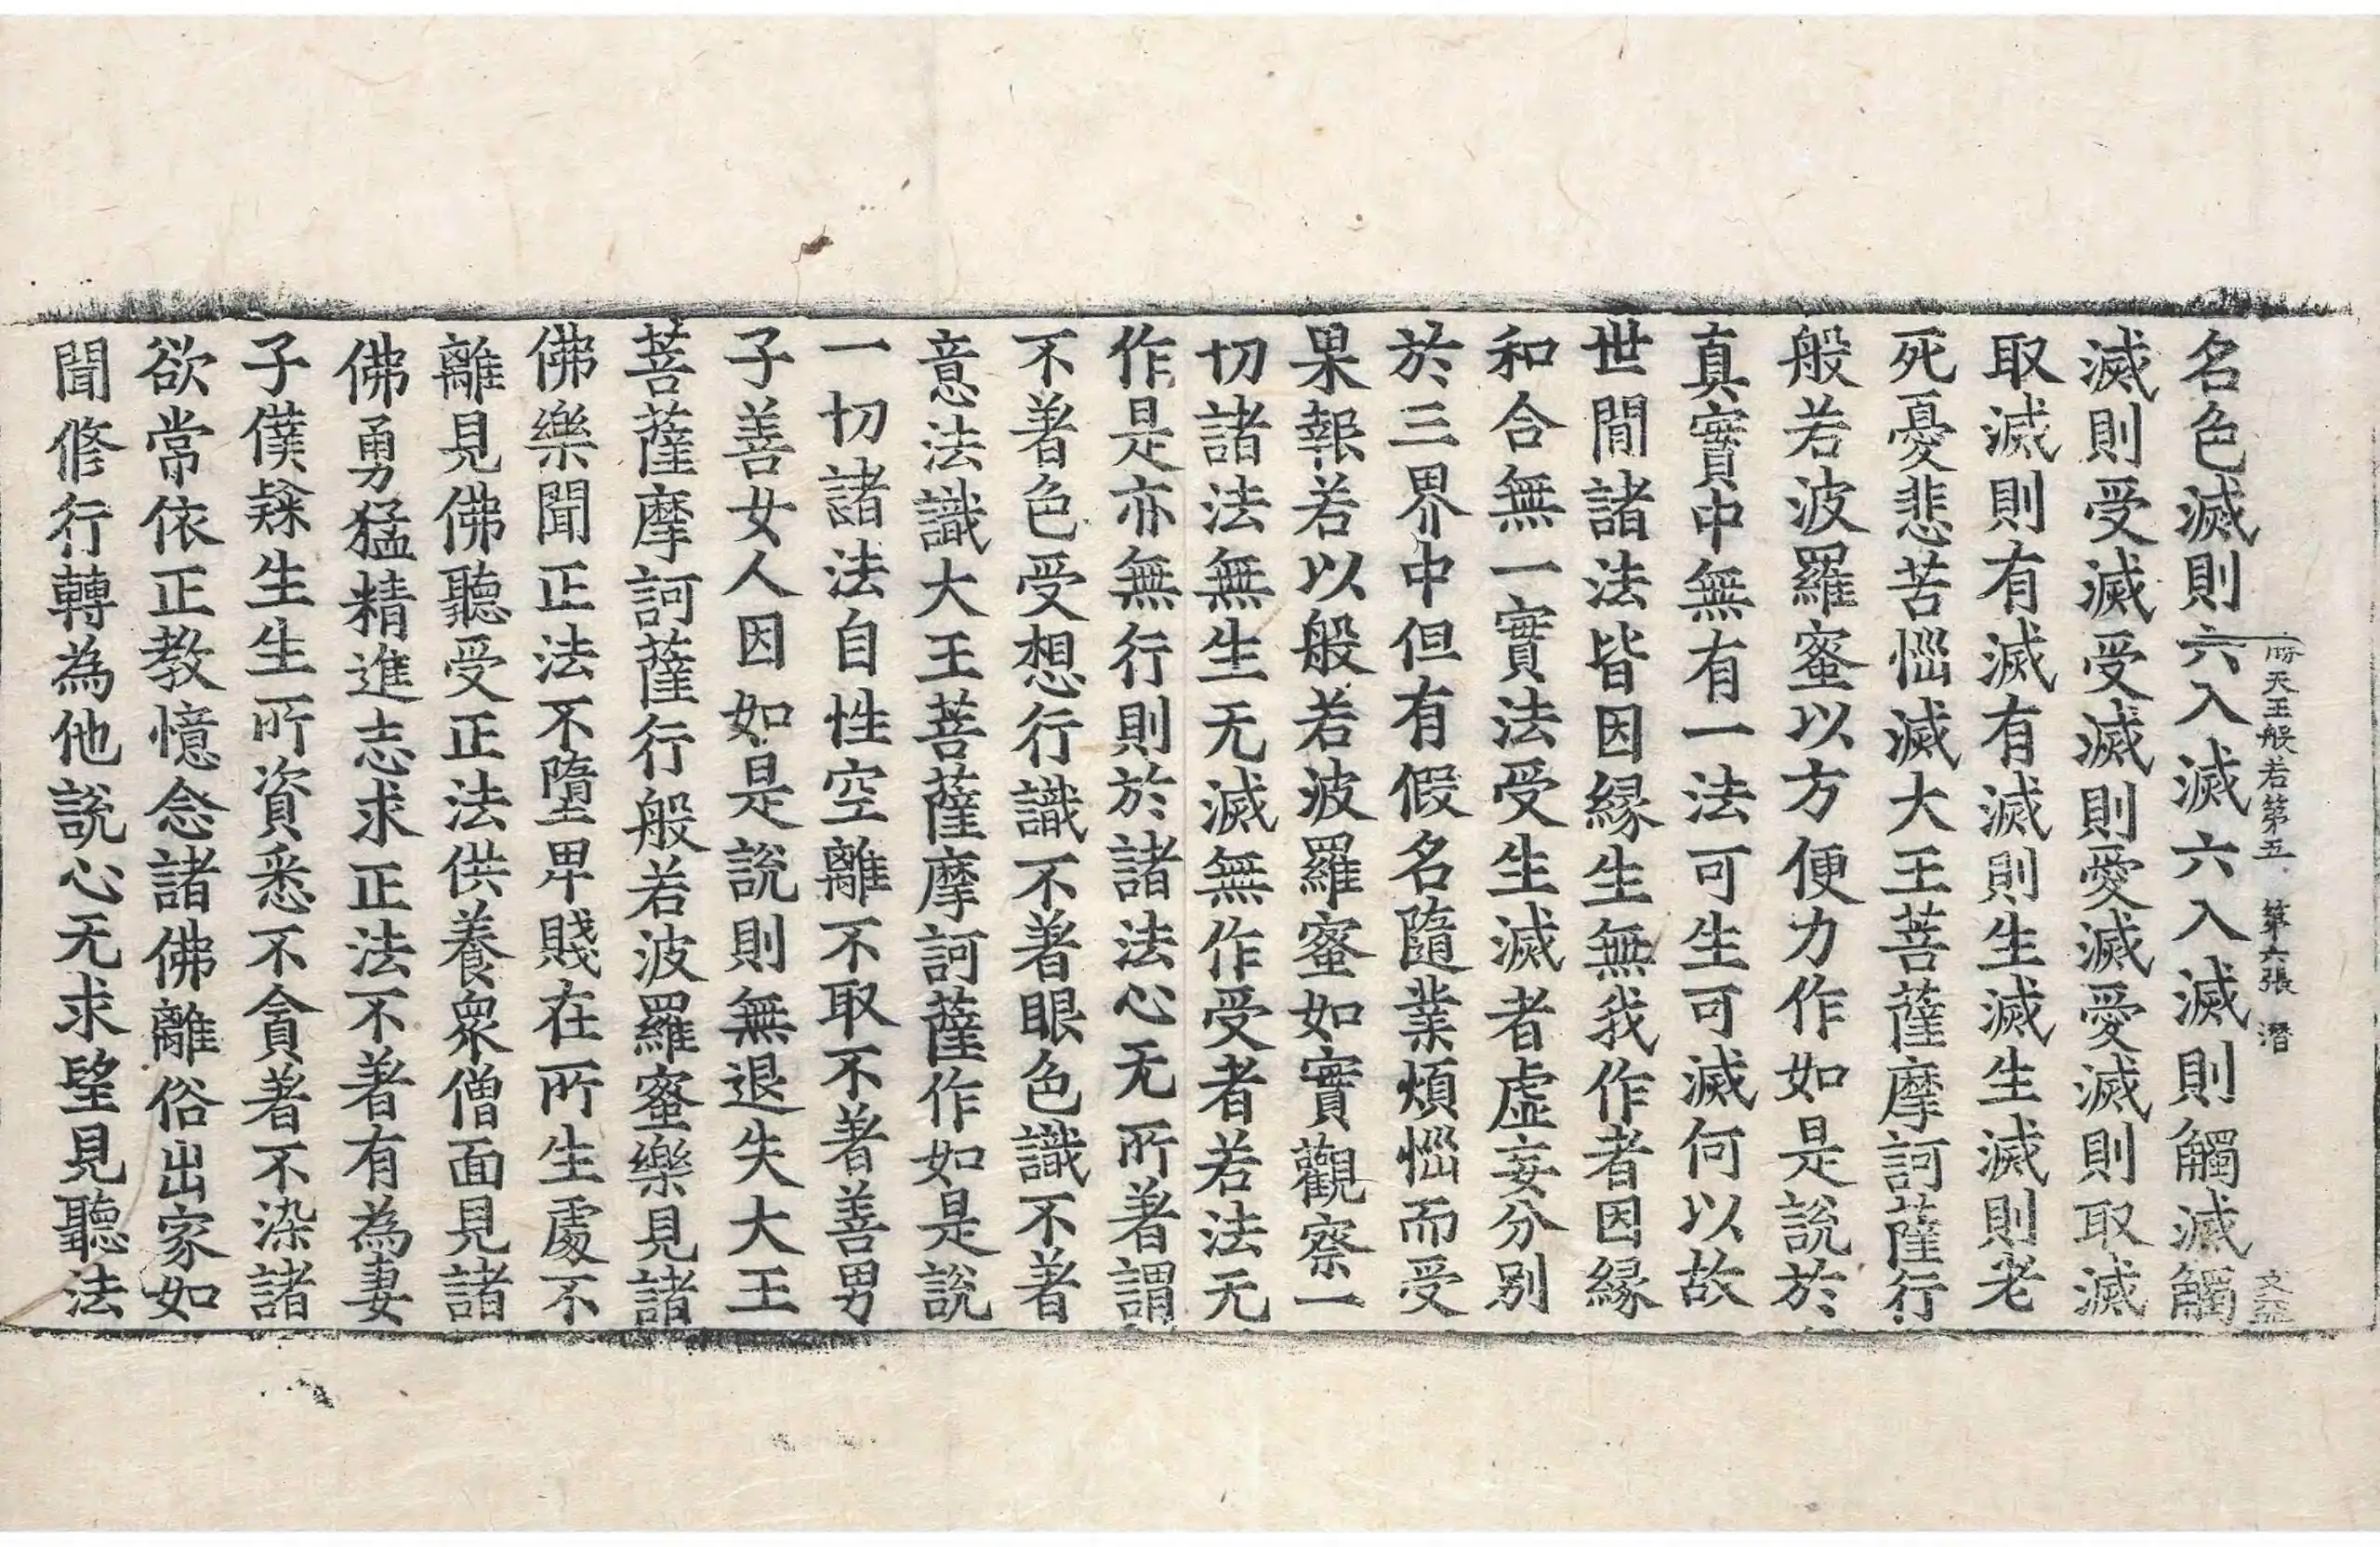 勝天王般若第五 第六張 潜
名色滅則六入滅六入滅則觸滅觸
滅則受滅受滅則愛滅愛滅則取滅
取滅則有滅有滅則生滅生滅則老
死憂悲苦惱滅大王菩薩摩訶薩行
般若波羅蜜以方便力作如是說於
真實中無有一法可生可滅何以故
世間諸法皆因緣生無我作者因緣
和合無一實法受生滅者虛妄分別
於三界中但有假名隨業煩惱而受
果報若以般若波羅蜜如實觀察一
切諸法無生无滅無作受者若法无
作是亦無行則於諸法心无所著謂
不著色受想行識不著眼色識不著
意法識大王菩薩摩訶薩作如是說
一切諸法自性空離不取不著善男
子善女人因如是說則無退失大王
菩薩摩訶薩行般若波羅蜜樂見諸
佛樂聞正法不墮卑賤在所生處不
離見佛聽受正法供養衆僧面見諸
佛勇猛精進志求正法不著有為妻
子僕隸生生所資悉不貪著不染諸
欲常依正教憶念諸佛離俗出家如
聞修行轉為他說心无求望見聽法